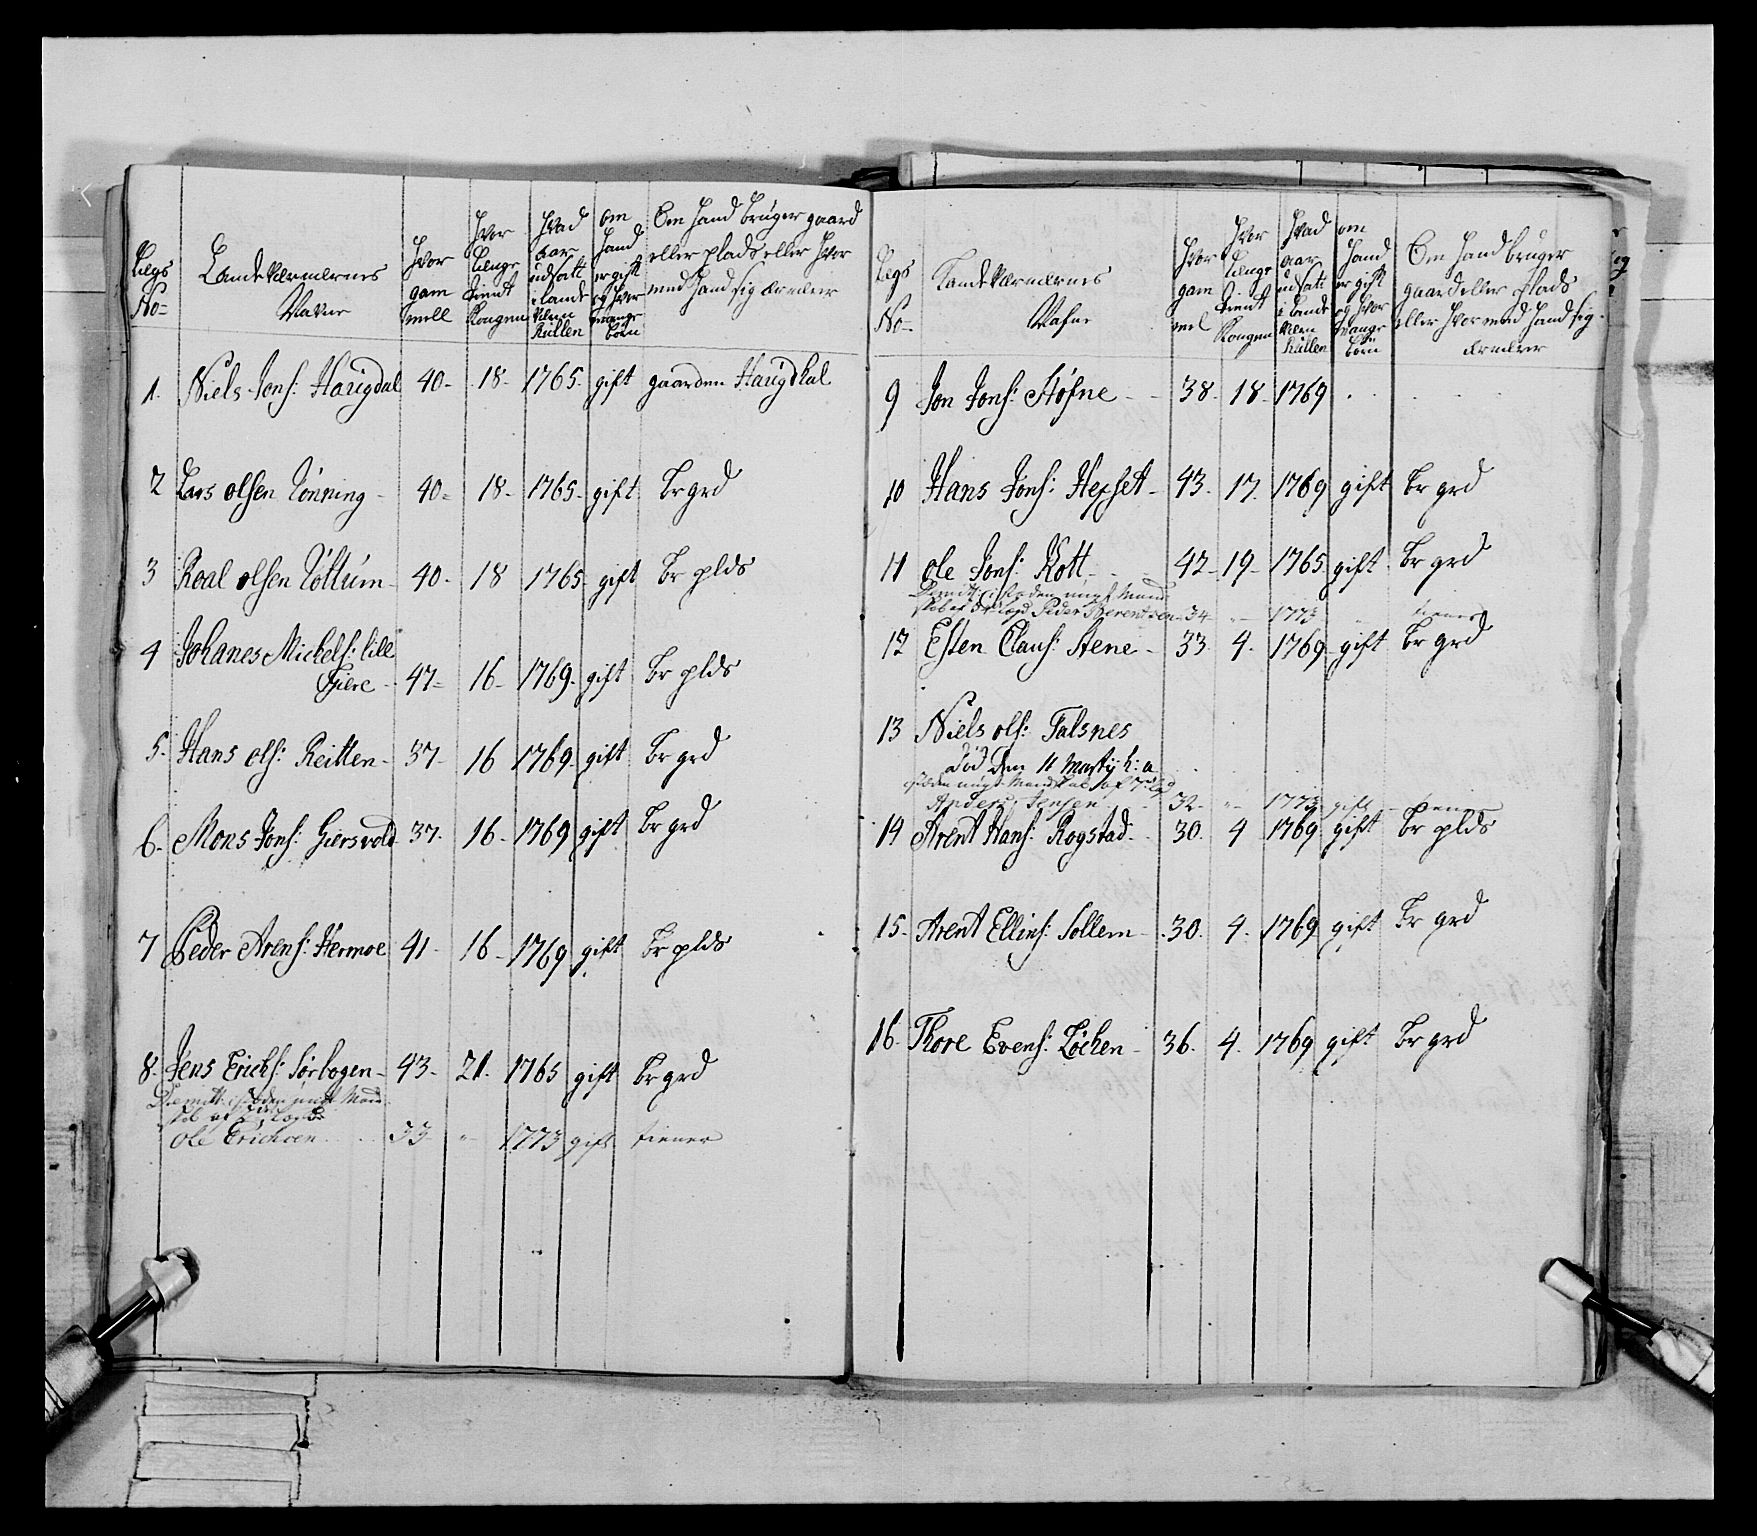 Legs
No=
Landeværnernes
Nafne
Hvor
gam
mell
Hvor
længe
tient
Kongen
Hvad
aar
udsatt
i Lande
værn
Rullen
om
Hand
er gift
og hvor
mange
börn
Om Hand bruger gaard
eller plads eller Hvor
med Hand sig ernærer
1. Niels Jons: Haugdal 40- 18- 1765. gift gaarden Haugdhal
2 Lars olsen Rönning - 40= 18- 1765- gift br grd
3 Roal olsen Röttum - 40- 18 1765 gift br plds
4 Johanes Michels: lille
Fjere - 47= 16- 1769- gift br plds
5. Hans ols: Reitten - 37- 16 1769- gift br grd
6. Mons Jons: Giersvold 37- 16- 1769 gift br grd
7 Peder Arens: Hermoe 41- 16- 1769 gift br plds
8. Jens Erichs: Sörbogen - 43- 21. 1765 gift br grd
Dimitt: i steden Mand
skab af legd
Ole Erichsen 33 " 1773 gift tiener
Legs
No=
Landeværnernes
Nafne
Hvor
gam
mel
Hvor
længe
tient
Kongen
Hvad
aar
udsatt
i Lande
værn
Rullen
om
Hand
er gift
og hvor
mange
börn
Om Hand bruger
gaard eller plads
eller Hvormed Hand sig
ernærer
9 Jon Jons: Stöfne - - 38. 18. 1769
10 Hans Jons: Hepset - 43. 17. 1769 gift br grd
11 ole Jons: Kott - - 42- 19- 1765 gift br grd
Dimitt: i steden Mand
skab af legd Peder Berentsen 34 - 1773 tiener
12 Esten Claus: Stene - 33 4. 1769 gift br grd
13 Niels ols: Falsnes
död den 11 Martij h: a
isteden Mandskab af legd
Anders Jensen 32- - 1773 gift tiener
14 Arent Hans: Rogstad - 30. 4 1769 gift br plds
15- Arent Ellins: Sollem - 30. 4. 1769 gift br grd
16. Thore Evens: Löchen - 36. 4. 1769 gift br grd